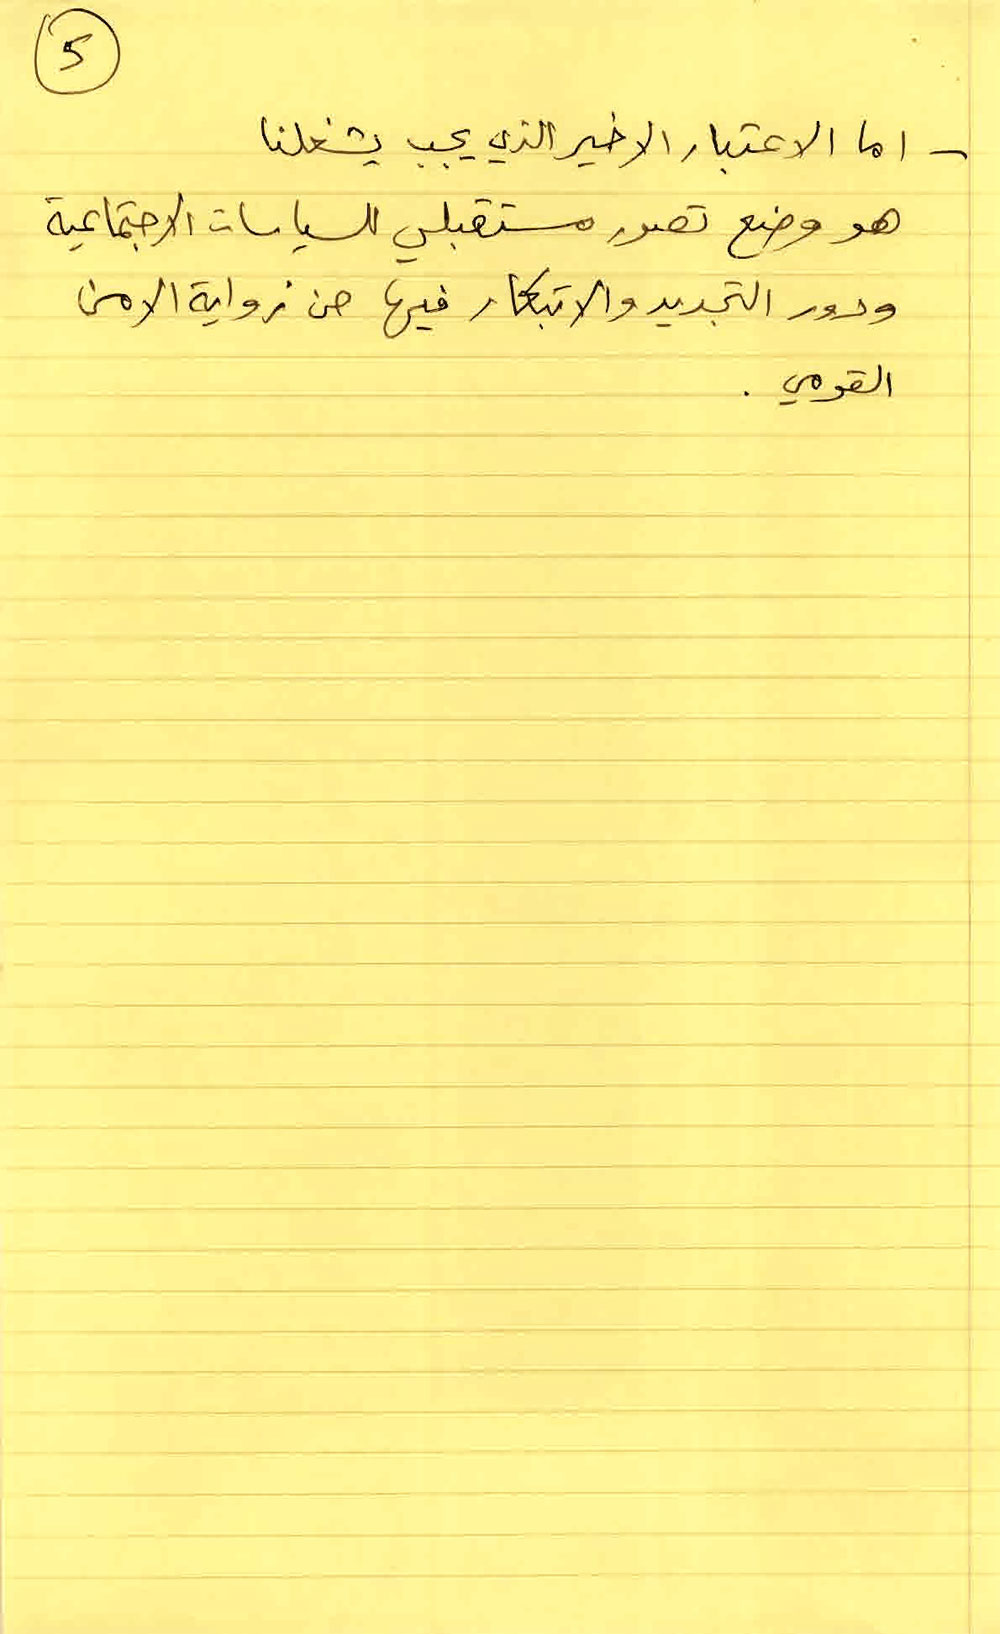 5
- اما الاعتبار الاخير الذي يجب يشغلنا
هو وضع تصور مستقبلي للسياسات الاجتماعية
ودور التجديد والابتكار فيها من زواية الامن
القومي .